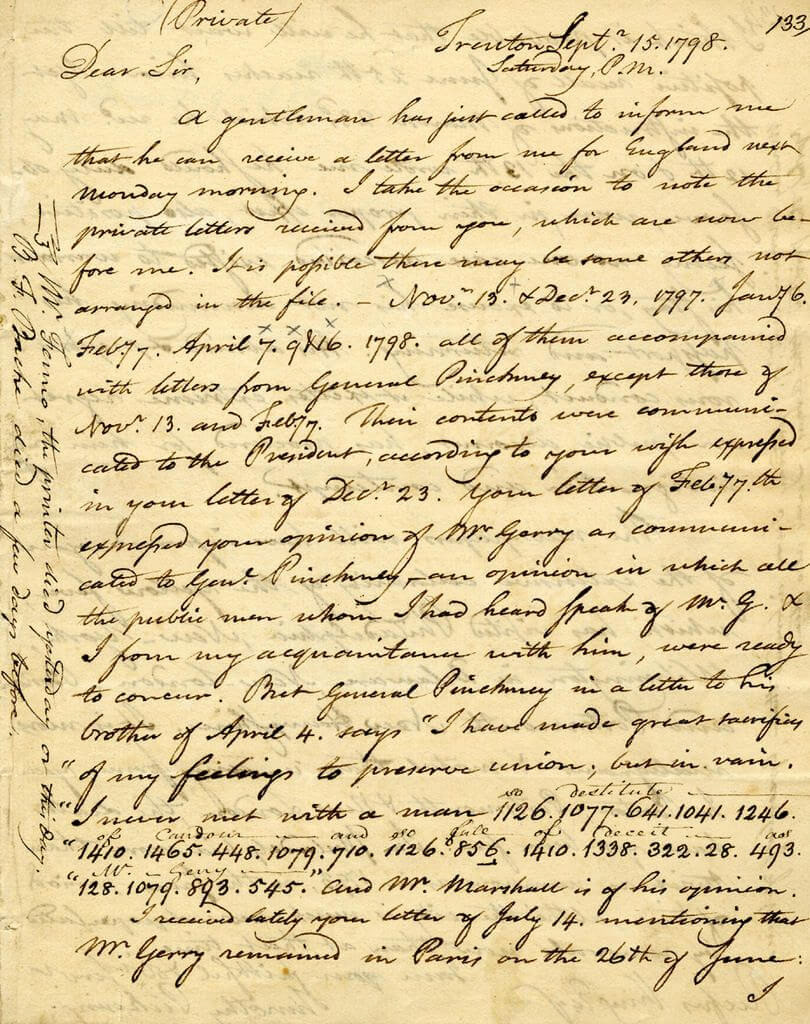 (Private)
133
Trenton Septr. 15. 1798.
Saturday, P.M.
Dear Sir,
A gentleman has just called to inform me
that he can receive a letter from me for England next
monday morning. I take the occasion to note the
private letters received from you, which are now be-
fore me. It is possible there may be some others not
arranged in the file. — Novr. 13. & Decr. 23, 1797. Jany 6.
Feby 7. April 7. 9 & 16. 1798. all of them accompanied
with letters from General Pinckney, except those of
Novr. 13. and Feby 7. Their contents were communi-
cated to the President, according to your wish expressed
in your letter of Decr. 23. Your letter of Feby 7.th
expressed your opinion of Mr. Gerry as communi-
cated to Genl. Pinckney,—an opinion in which all
the public men whom I had heard speak of Mr. G. &
I from my acquaintance with him, were ready
to concur. But General Pinckney in a letter to his
brother of April 4. says "I have made great sacrifices
"of my feelings to preserve union; but in vain.
so destitute
"I never met with a man 1126. 1077. 641. 1041. 1246.
of candour and so full of deceit as
"1410. 1465. 448. 1079. 710. 1126. 856. 1410. 1338. 322. 28. 493.
Mr. Gerry
"128. 1079. 893. 545." And Mr. Marshall is of his opinion.
I received lately your letter of July 14. mentioning that
Mr. Gerry remained in Paris on the 26th of June:
I
Mr. Fenno, the printer died yesterday or this day.
B. F. Bache died a few days before.